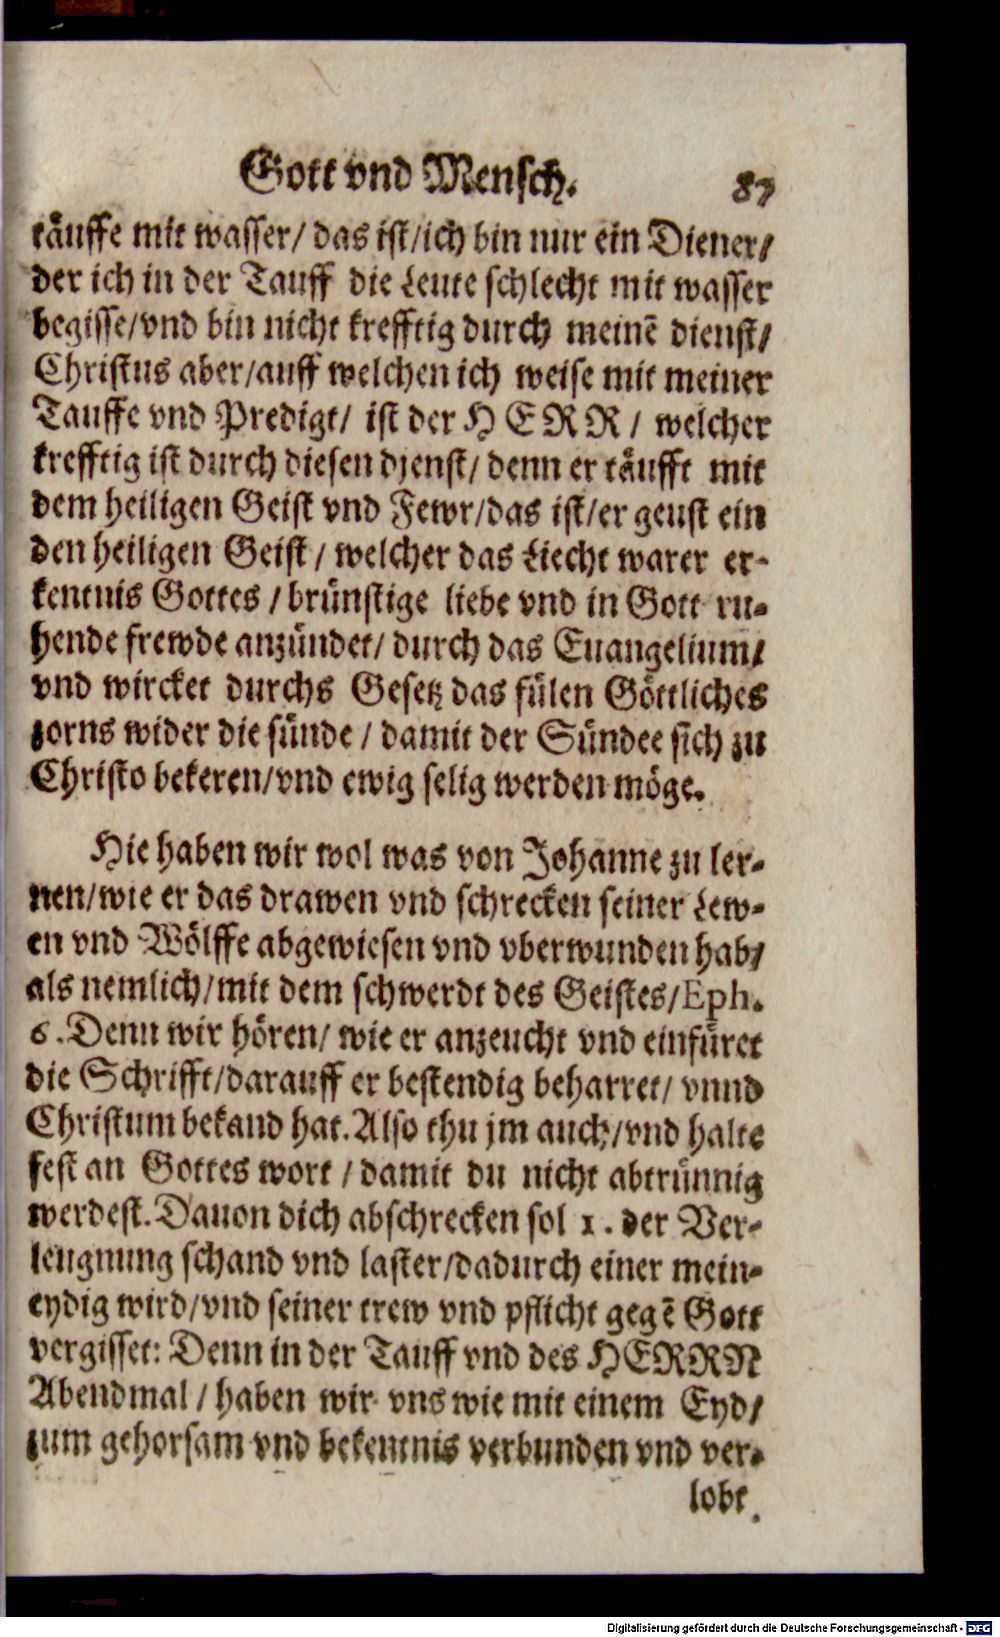 Gott vnd Mensch. 87
täuffe mit wasser/ das ist/ich bin nur ein Diener/
der ich in der Tauff die Leute schlecht mit wasser
begisse/vnd bin nicht krefftig durch meinē dienst/
Christus aber/auff welchen ich weise mit meiner
Tauffe vnd Predigt/ ist der HERR/ welcher
krefftig ist durch diesen djenst/ denn er täufft mit
dem heiligen Geist vnd Fewr/das ist/er geust ein
den heiligen Geist/ welcher das Liecht warer er-
kentnis Gottes/ brünstige liebe vnd in Gott ru-
hende frewde anzündet/ durch das Euangelium/
vnd wircket durchs Gesetz das fülen Göttliches
zorns wider die sünde/ damit der Sündee sich zu
Christo bekeren/vnd ewig selig werden möge.
Hie haben wir wol was von Johanne zu ler-
nen/wie er das drawen vnd schrecken seiner Lew-
en vnd Wölffe abgewiesen vnd vberwunden hab/
als nemlich/mit dem schwerdt des Geistes/Eph.
6. Denn wir hören/ wie er anzeucht vnd einfüret
die Schrifft/darauff er bestendig beharret/ vnnd
Christum bekand hat. Also thu jm auch/vnd halte
fest an Gottes wort/ damit du nicht abtrünnig
werdest. Dauon dich abschrecken sol 1. der Ver-
leugnung schand vnd laster/dadurch einer mein-
eydig wird/vnd seiner trew vnd pflicht gegē Gott
vergisset: Denn in der Tauff vnd des HERRN
Abendmal/ haben wir vns wie mit einem Eyd/
zum gehorsam vnd bekentnis verbunden vnd ver-
lobt
Digitalisierung gefördert durch die Deutsche Forschungsgemeinschaft - DFG